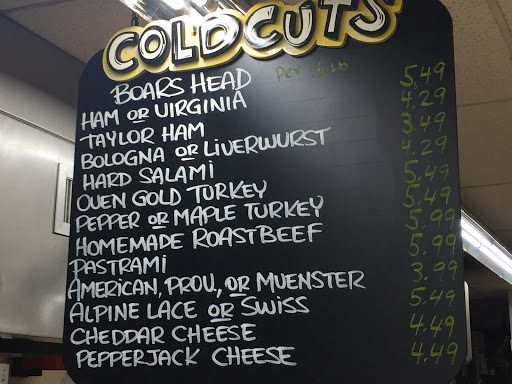 COLD CUTS
BOARS HEAD Per ½ Lb
HAM OR VIRGINIA 5.49
TAYLOR HAM 4.29
BOLOGNA OR LIVERWURST 3.49
HARD SALAMI 4.29
OVEN GOLD TURKEY 5.49
PEPPER OR MAPLE TURKEY 5.49
HOMEMADE ROASTBEEF 5.99
PASTRAMI 5.99
AMERICAN, PROV, OR MUENSTER 3.99
ALPINE LACE OR SWISS 5.49
CHEDDAR CHEESE 4.49
PEPPERJACK CHEESE 4.49